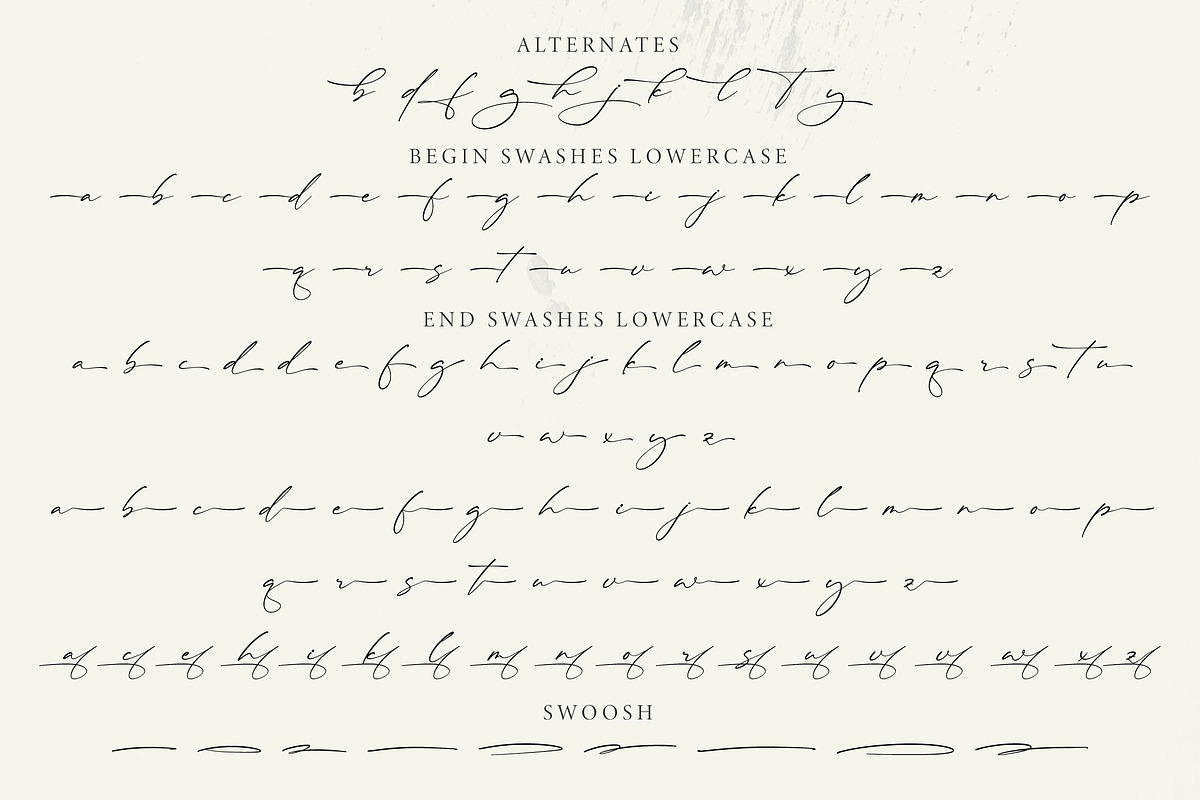 ALTERNATES
b d f g h j k l T y
BEGIN SWASHES LOWERCASE
a b c d e f g h i j k l m n o p
q r s t u v w x y z
END SWASHES LOWERCASE
a b c d d e f g h i j k l m n o p q r s t u
v w x y z
a b c d e f g h i j k l m n o p
q r s t u v w x y z
a c e h i k l m n o r s u v v w x z
SWOOSH